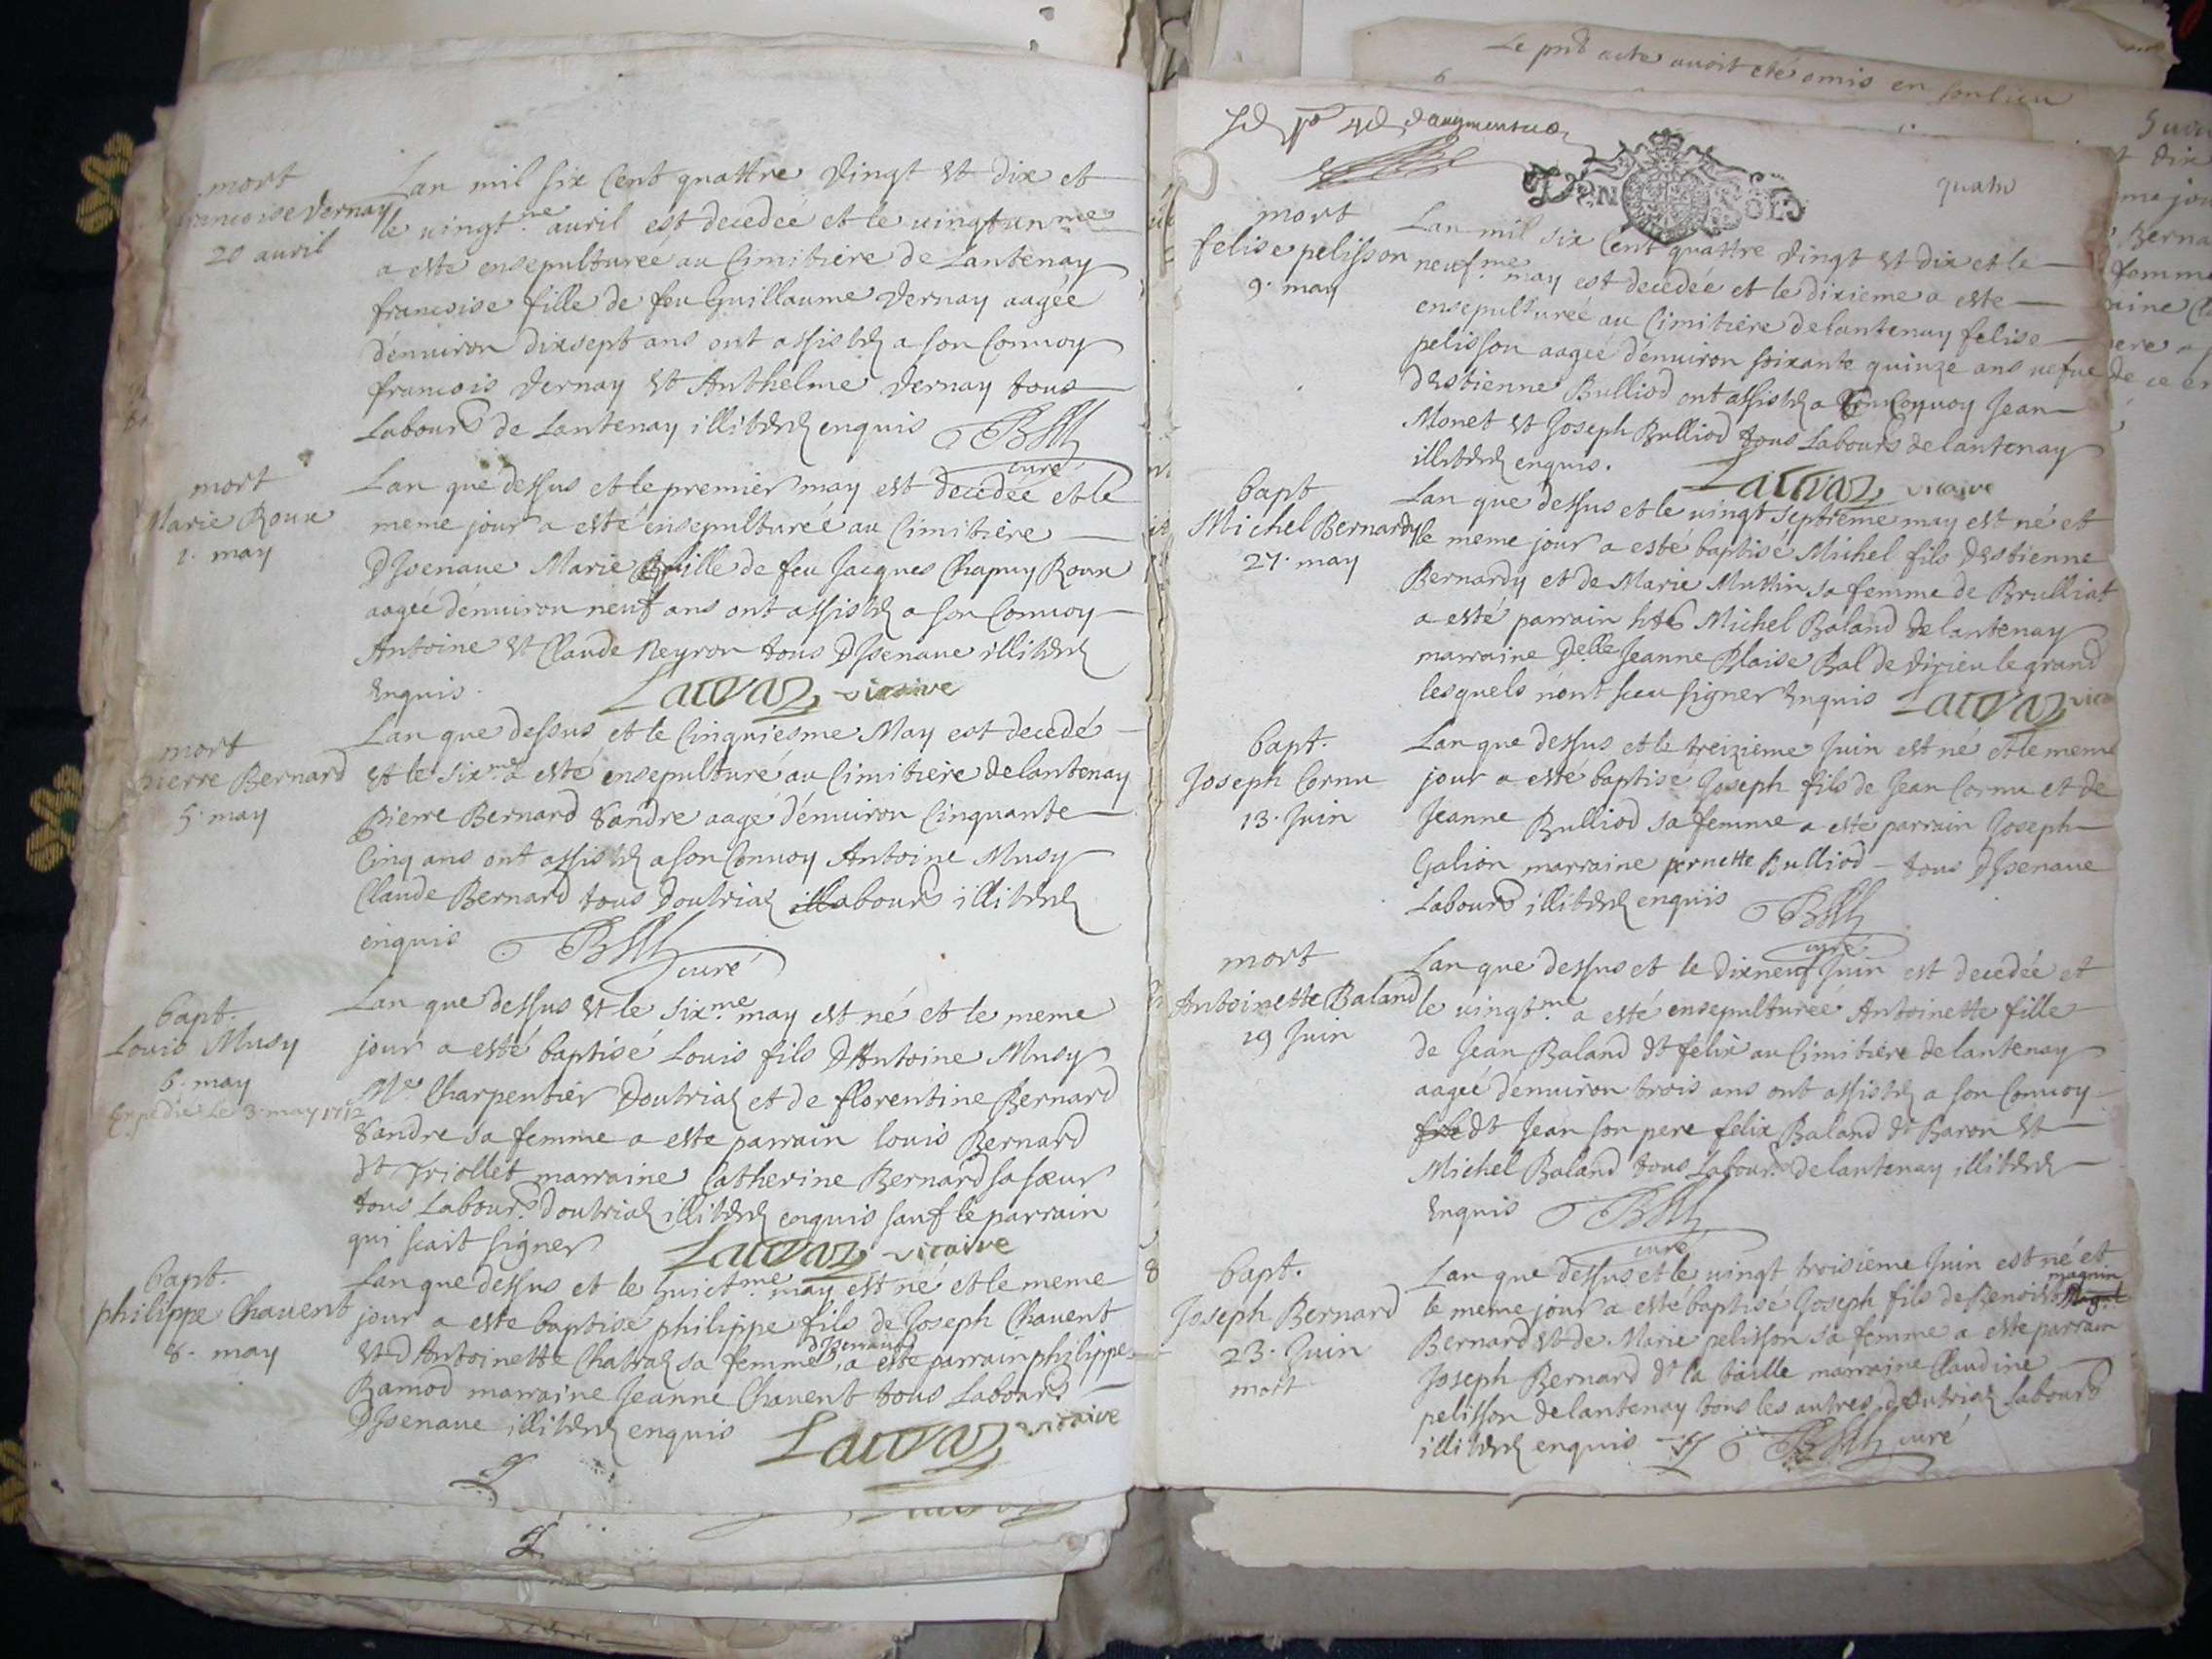 mort
francoise Vernay
20 avril
Lan mil six Cent quattre Vingt et dix et
le vingt.me avril est decedée et le vingtunme
a esté ensepulturée au Cimitiere de Lantenay
francoise fille de feu Guillaume Vernay aagée
d'enuiron dixsept ans ont assistez a son Conuoy
francois Vernay et Anthelme Vernay tous
Labours de Lantenay illiterez enquis
curé
mort
Marie Roux
1. may
Lan que dessus et le premier may est decedée et le
meme jour a esté ensepulturéé au Cimitière
D'Isenaue Marie fille de feu Jacques Chapuy Roux
aageé d'enuiron neuf ans ont assistez a son Conuoy
Antoine et Claude Neyron tous D'Isenaue illiterez
Enquis. Lauvaz vicaire
mort
pierre Bernard
5. may
Lan que dessus et le Cinquiesme May est decedé
et le six.me a esté ensepulturé au Cimitiere de lantenay
Pierre Bernard Vandre aage d'enuiron Cinquante
Cinq ans ont assistez a son Conuoy Antoine Musy
Claude Bernard tous Doutriaz illabours illiterez
enquis
curé
bapt.
Louis Musy
6. may
Expedié Le 3. may 1712
Lan que dessus et le six.me may est né et le meme
jour a esté baptisé Louis fils D'Antoine Musy
Me. Charpentier Doutriaz et de florentine Bernard
Vandre sa femme a este parrain louis Bernard
dt Triollet marraine Catherine Bernard sa sœur
tous Labours. doutriaz illiterez enquis sauf le parrain
qui scait signer Lauvaz vicaire
bapt.
philippe Chauent
8. may
Lan que dessus et le huict.me may est né et le meme
jour a este baptisé philippe fils de Joseph Chauent
et d'Antoinette Chatraz sa femme d'Isenaue, a esté parrain philippe
Ramod marraine Jeanne Chauent tous Labours
D'Isenaue illiterez enquis Lauvaz vicaire
Le pnt acte auoit eté omis en son lieu
d'augmentaon
DEN SOLS
quatre
mort
felise pelisson
9. may
Lan mil six Cent quattre Vingt et dix et le
neuf.me may est decedée et le dixieme a este
ensepulturéé au Cimitiere de lantenay felise
pelisson aageé d'enuiron soixante quinze ans uefue
d'Estienne Bulliod ont assistez a son Conuoy Jean
Monet et Joseph Bulliod tous Labours de lantenay
illiterez enquis. Lauvaz vicaire
bapt
Michel Bernardy
27. may
Lan que dessus et le uingt septieme may est né et
le meme jour a esté baptisé Michel fils d'Estienne
Bernardy et de Marie Muttin sa femme de Brulliat
a esté parrain hte Michel Baland de lantenay
marraine Delle Jeanne Blaise Bal de Virieu le grand
lesquels n'ont sceu signer Enquis Lauvaz vica
bapt.
Joseph Cornu
13. Juin
Lan que dessus et le treizieme Juin est né et le meme
jour a esté baptisé Joseph fils de Jean Cornu et de
Jeanne Bulliod sa femme a este parrain Joseph
Galion marraine pernette Bulliod tous D'Isenaue
Labours illiterez enquis
curé
mort
Antoinette Baland
19 Juin
Lan que dessus et le dixneuf Juin est decedée et
le uingt.me a esté ensepulturéé Antoinette fille
de Jean Baland dt felix au Cimitiere de lantenay
aageé d'enuiron trois ans ont assistez a son Conuoy
dt Jean son pere felix Baland dt Baron et
Michel Baland tous Labours. de lantenay illiterez
Enquis
curé
bapt.
Joseph Bernard
23. Juin
mort
Lan que dessus et le uingt troisieme Juin est né et
le meme jour a esté baptisé Joseph fils de Benoist magnin
Bernard et de Marie pelisson sa femme a este parrain
Joseph Bernard dt la taille marraine Claudine
pelisson de lantenay tous les autres doutriaz Labours
illiterez enquis curé